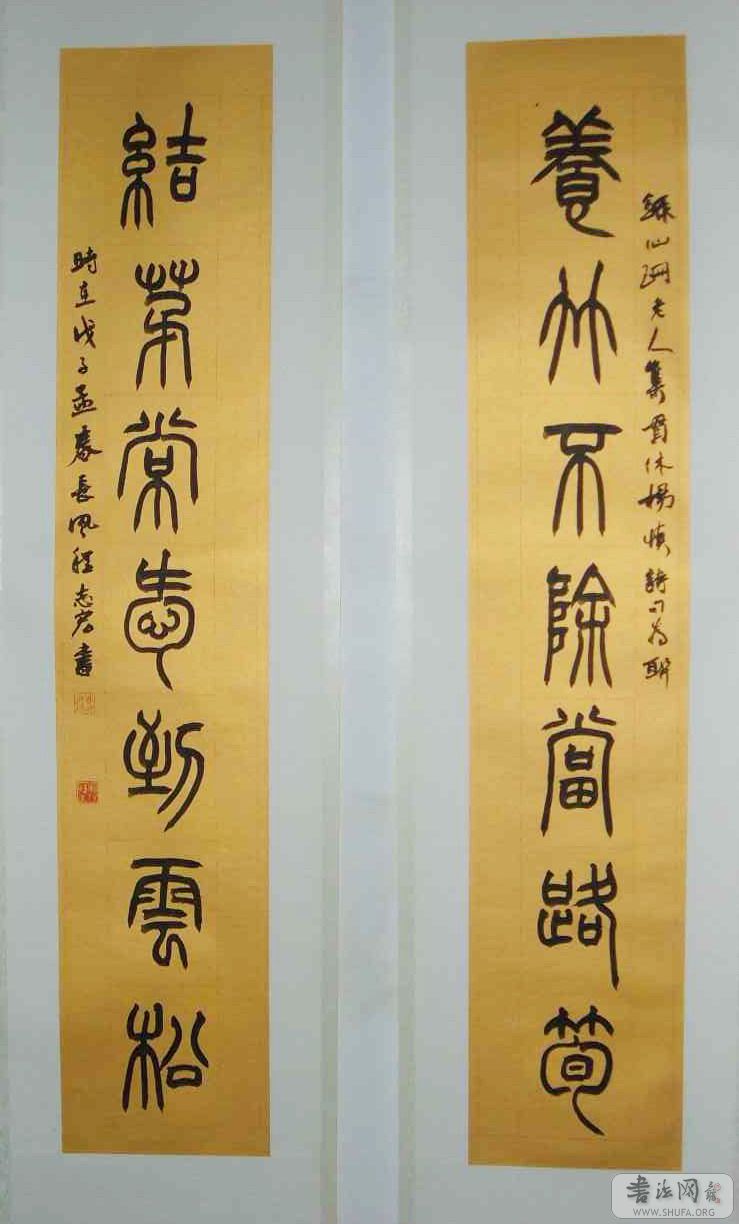 老人集貫休楊慎詩句为聯
養竹不除當路筍
結茅常到雲松
時在戊子孟春長風程志書
書法网
WWW.SHUFA.ORG